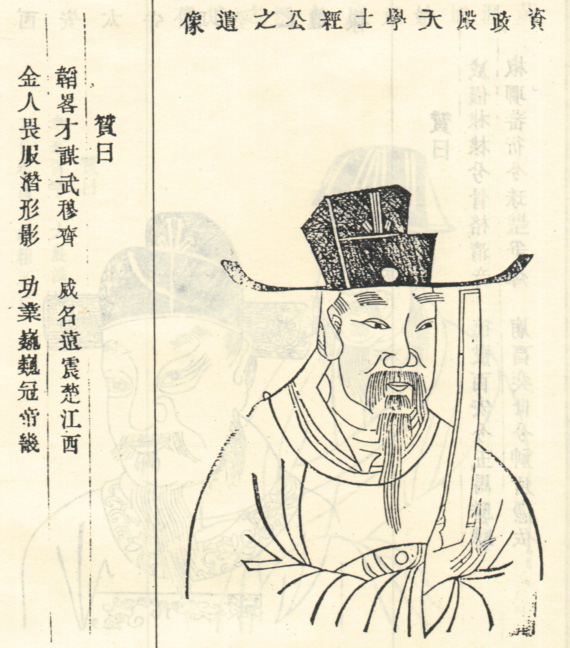 資政殿大學士經公之道像
贊曰
韜畧才謀武穆齊 威名遠震楚江西
金人畏服潛形影 功業巍巍冠帝畿